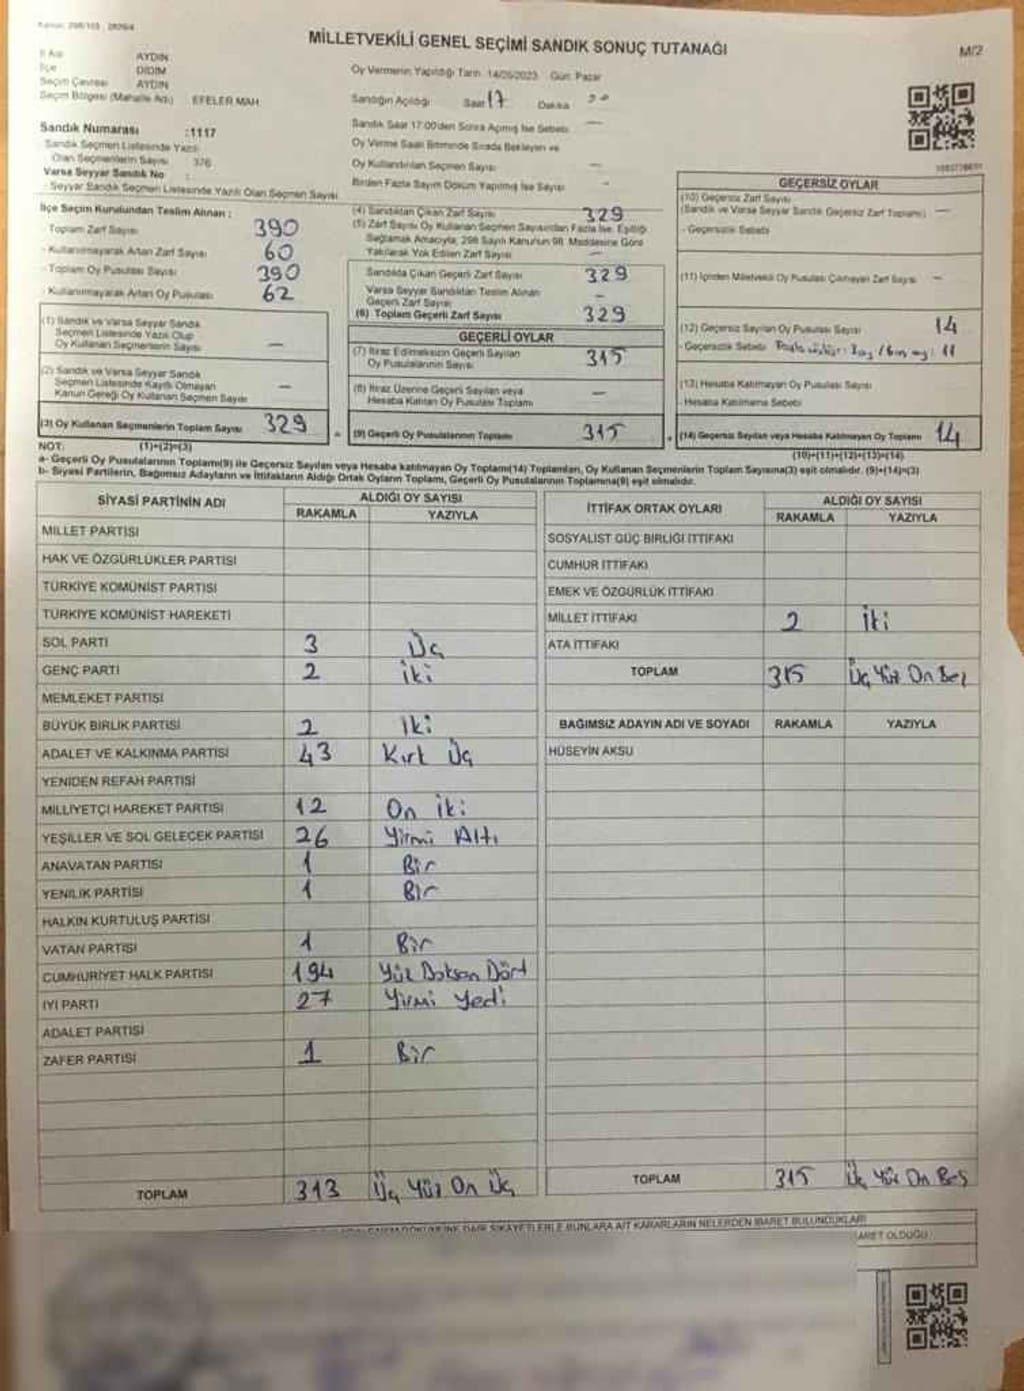 MİLLETVEKİLİ GENEL SEÇİMİ SANDIK SONUÇ TUTANAĞI
M/2
İl Adı AYDIN
İlçe DİDİM
Seçim Çevresi AYDIN
Seçim Bölgesi (Mahalle Adı) : EFELER MAH.
Oy Vermenin Yapıldığı Tarih : 14/05/2023 Gün: Pazar
Sandığın Açıldığı Saat 17 Dakika
Sandık Saat 17:00'den Sonra Açılmış İse Sebebi —
Oy Verme Saati Bitiminde Sırada Bekleyen ve
Oy Kullandırılan Seçmen Sayısı —
Birden Fazla Sayım Döküm Yapılmış İse Sayısı -
Sandık Numarası :1117
Sandık Seçmen Listesinde Yazılı
Olan Seçmenlerin Sayısı : 376
Varsa Seyyar Sandık No :
Seyyar Sandık Seçmen Listesinde Yazılı Olan Seçmen Sayısı
İlçe Seçim Kurulundan Teslim Alınan :
- Toplam Zarf Sayısı 390
- Kullanılmayarak Artan Zarf Sayısı 60
- Toplam Oy Pusulası Sayısı 390
- Kullanılmayarak Artan Oy Pusulası 62
(1) Sandık ve Varsa Seyyar Sandık
Seçmen Listesinde Yazılı Olup
Oy Kullanan Seçmenlerin Sayısı —
(2) Sandık ve Varsa Seyyar Sandık
Seçmen Listesinde Kayıtlı Olmayan
Kanun Gereği Oy Kullanan Seçmen Sayısı —
(3) Oy Kullanan Seçmenlerin Toplam Sayısı 329
(1)+(2)=(3)
(4) Sandıktan Çıkan Zarf Sayısı 329
(5) Zarf Sayısı Oy Kullanan Seçmen Sayısından Fazla İse, Eşitliği
Sağlamak Amacıyla, 298 Sayılı Kanun'un 98. Maddesine Göre
Yakılarak Yok Edilen Zarf Sayısı —
Sandıkta Çıkan Geçerli Zarf Sayısı 329
Varsa Seyyar Sandıktan Teslim Alınan
Geçerli Zarf Sayısı -
(6) Toplam Geçerli Zarf Sayısı 329
GEÇERLİ OYLAR
(7) İtiraz Edilmeksizin Geçerli Sayılan
Oy Pusulalarının Sayısı 315
(8) İtiraz Üzerine Geçerli Sayılan veya
Hesaba Katılan Oy Pusulası Toplamı —
(9) Geçerli Oy Pusulalarının Toplamı 315
GEÇERSİZ OYLAR
(10) Geçersiz Zarf Sayısı
(Sandık ve Varsa Seyyar Sandık Geçersiz Zarf Toplamı) —
- Geçersizlik Sebebi
(11) İçinden Milletvekili Oy Pusulası Çıkmayan Zarf Sayısı -
(12) Geçersiz Sayılan Oy Pusulası Sayısı 14
- Geçersizlik Sebebi
(13) Hesaba Katılmayan Oy Pusulası Sayısı
- Hesaba Katılmama Sebebi
(14) Geçersiz Sayılan veya Hesaba Katılmayan Oy Toplamı 14
(10)+(11)+(12)+(13)=(14)
NOT:
a- Geçerli Oy Pusulalarının Toplamı(9) ile Geçersiz Sayılan veya Hesaba katılmayan Oy Toplamı(14) Toplamları, Oy Kullanan Seçmenlerin Toplam Sayısına(3) eşit olmalıdır. (9)+(14)=(3)
b- Siyasi Partilerin, Bağımsız Adayların ve İttifakların Aldığı Ortak Oyların Toplamı, Geçerli Oy Pusulalarının Toplamına(9) eşit olmalıdır.
SİYASİ PARTİNİN ADI ALDIĞI OY SAYISI
RAKAMLA YAZIYLA
MİLLET PARTİSİ
HAK VE ÖZGÜRLÜKLER PARTİSİ
TÜRKİYE KOMÜNİST PARTİSİ
TÜRKİYE KOMÜNİST HAREKETİ
SOL PARTİ 3 Üç
GENÇ PARTİ 2 İki
MEMLEKET PARTİSİ
BÜYÜK BİRLİK PARTİSİ 2 İki
ADALET VE KALKINMA PARTİSİ 43 Kırk Üç
YENİDEN REFAH PARTİSİ
MİLLİYETÇİ HAREKET PARTİSİ 12 On İki
YEŞİLLER VE SOL GELECEK PARTİSİ 26 Yirmi Altı
ANAVATAN PARTİSİ 1 Bir
YENİLİK PARTİSİ 1 Bir
HALKIN KURTULUŞ PARTİSİ
VATAN PARTİSİ 1 Bir
CUMHURİYET HALK PARTİSİ 194 Yüz Doksan Dört
İYİ PARTİ 27 Yirmi Yedi
ADALET PARTİSİ
ZAFER PARTİSİ 1 Bir
TOPLAM 313 Üç Yüz On Üç
İTTİFAK ORTAK OYLARI ALDIĞI OY SAYISI
RAKAMLA YAZIYLA
SOSYALİST GÜÇ BİRLİĞİ İTTİFAKI
CUMHUR İTTİFAKI
EMEK VE ÖZGÜRLÜK İTTİFAKI
MİLLET İTTİFAKI 2 İki
ATA İTTİFAKI
TOPLAM 315 Üç Yüz On Beş
BAĞIMSIZ ADAYIN ADI VE SOYADI RAKAMLA YAZIYLA
HÜSEYİN AKSU
TOPLAM 315 Üç Yüz On Beş
ŞİKAYETLERLE BUNLARA AİT KARARLARIN NELERDEN İBARET BULUNDUKLARI
OLDUĞU